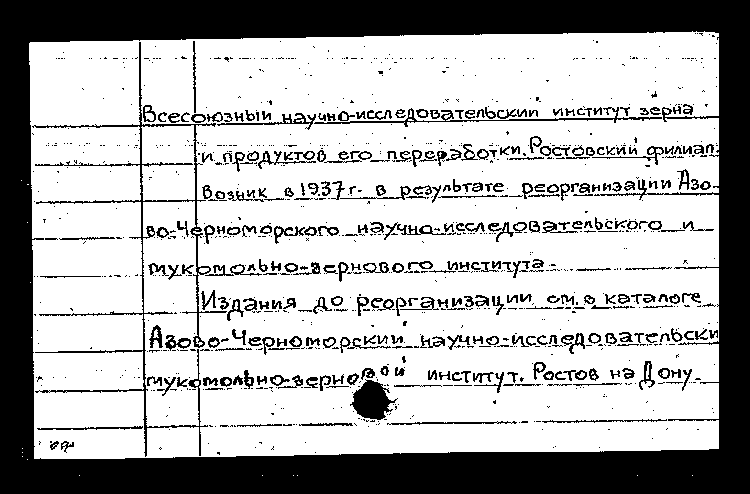 Всесоюзный научно-исследовательский институт зерна
и продуктов его переработки. Ростовский филиал.
Возник в 1937г. в результате реорганизации Азо-
во-Черноморского научно-исследовательского и
мукомольно-зернового института.
Издания до реорганизации см. в каталоге
Азово-Черноморский научно-исследовательски
мукомольно-зерновой институт. Ростов на Дону.